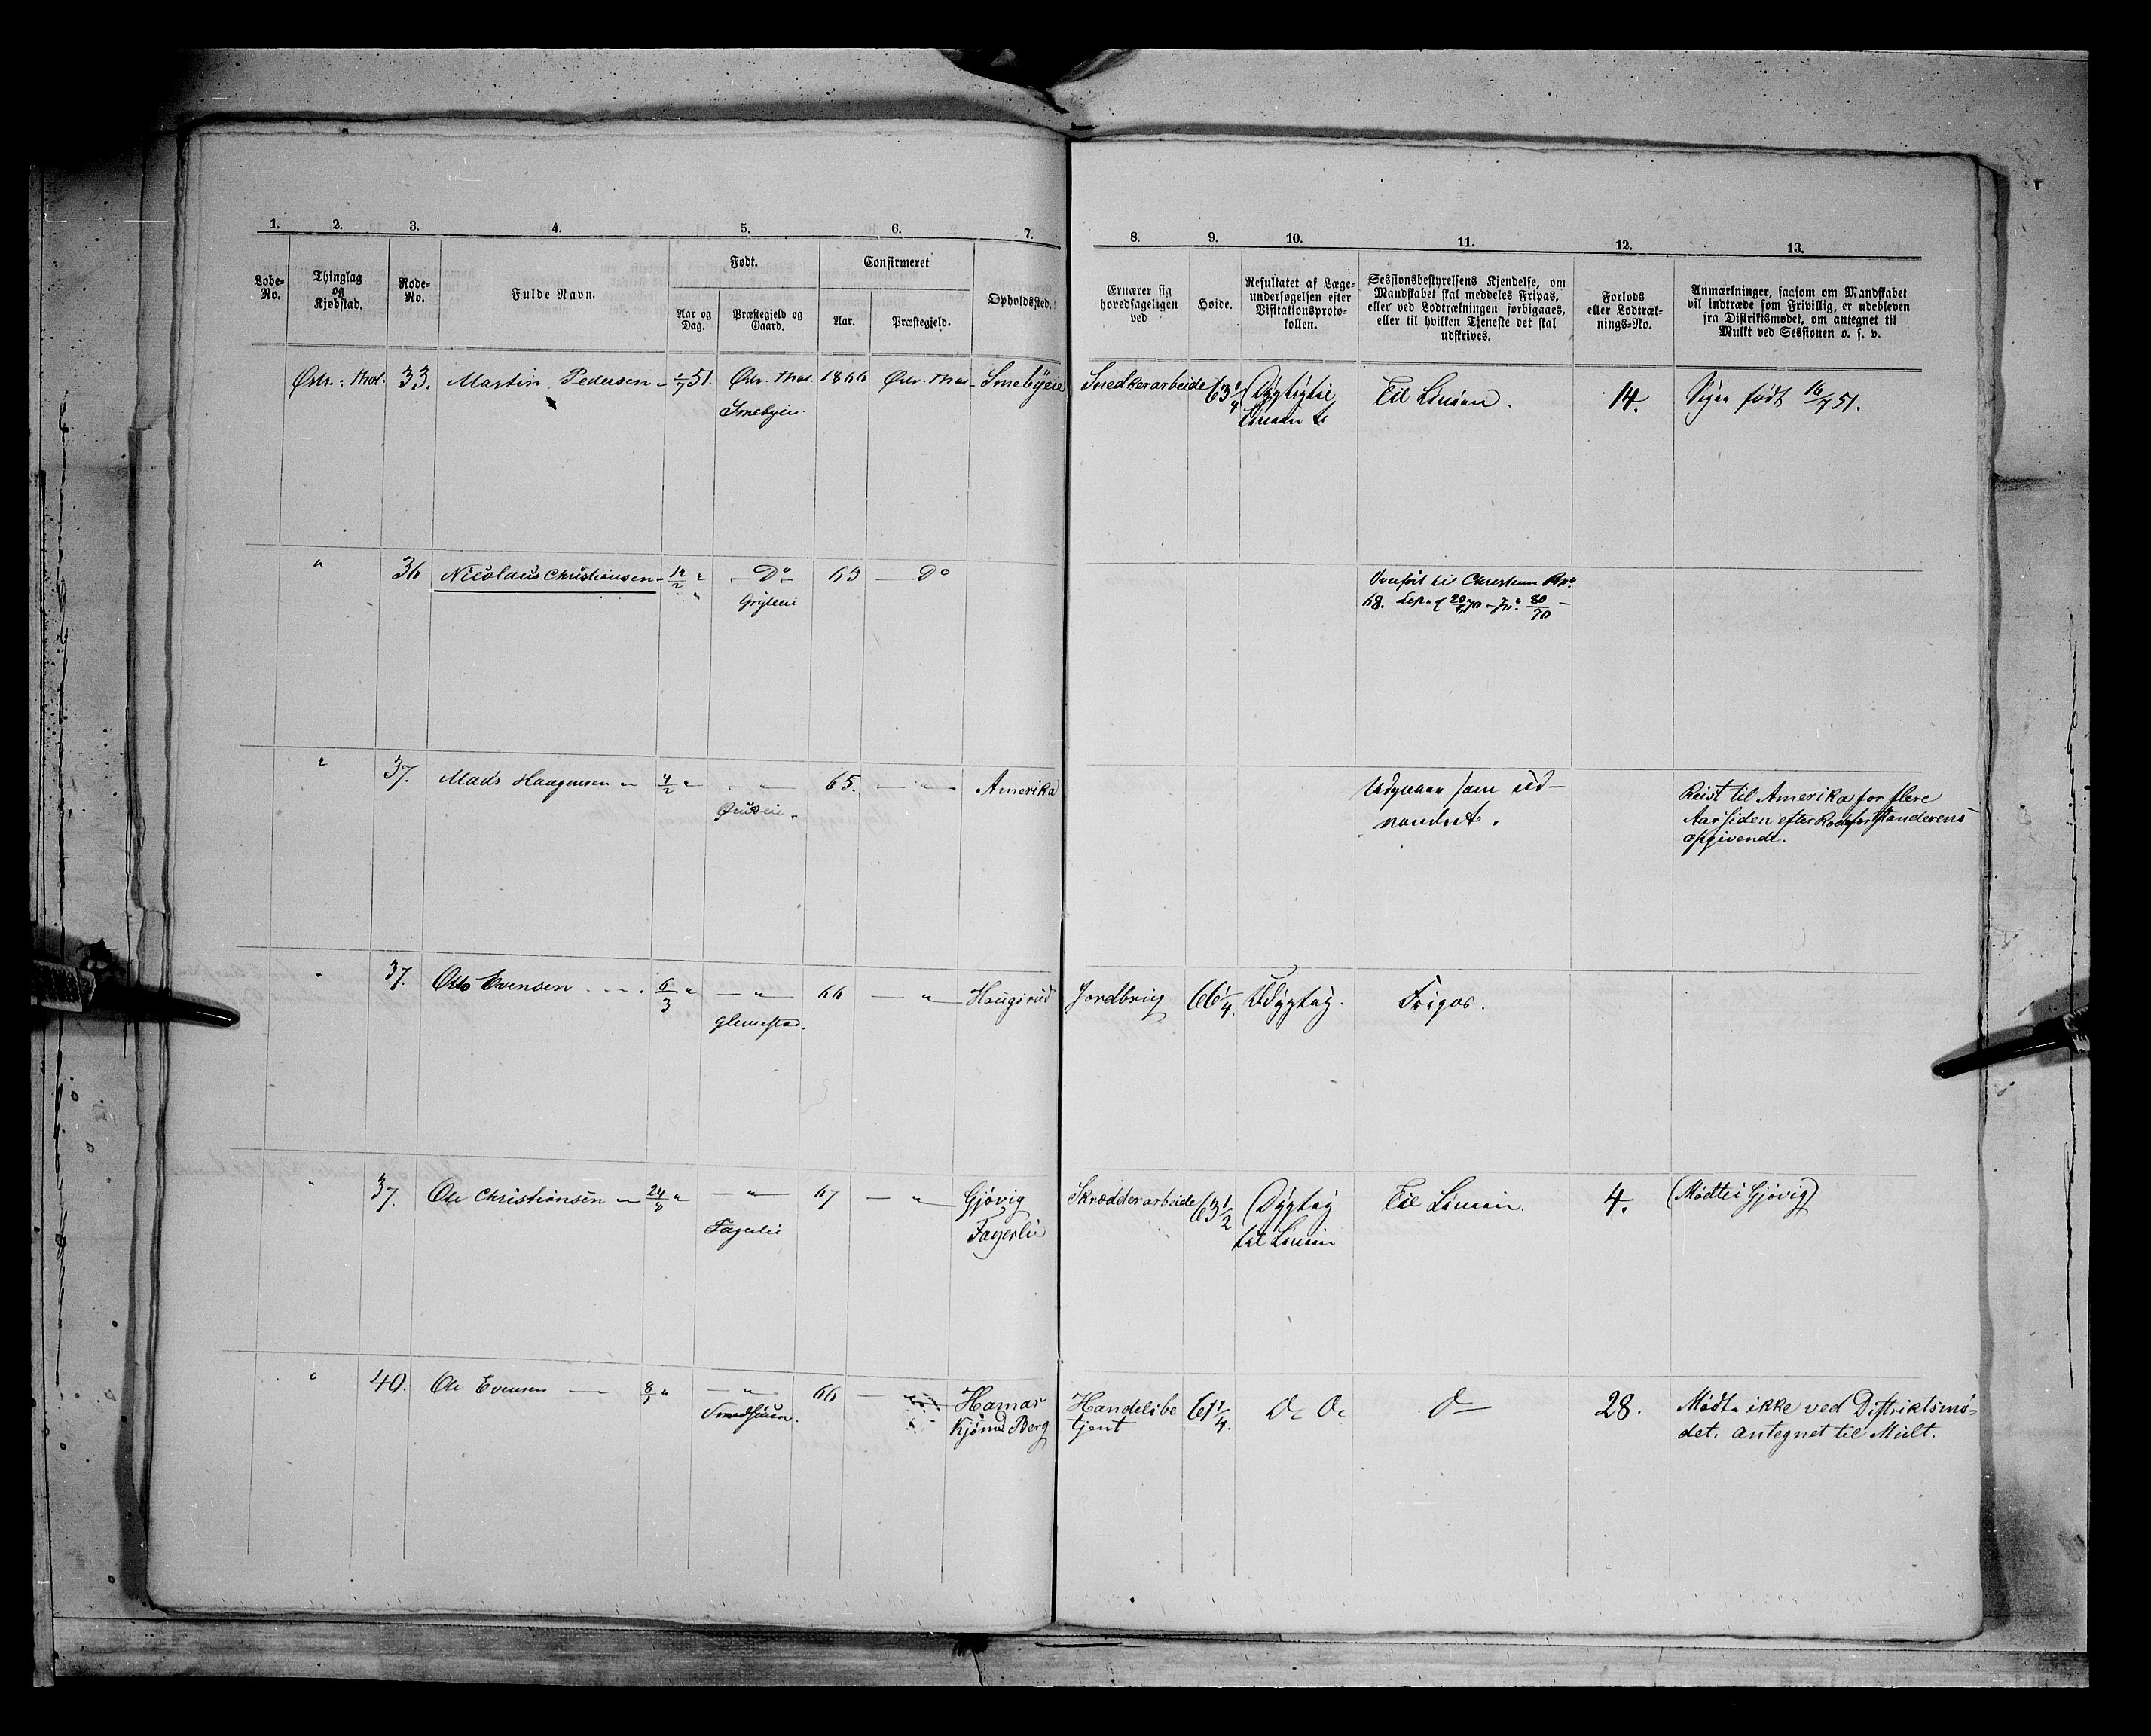 1. 2. 3. 4. 5. 6. 7. 8. 9. 10. 11. 12. 13.
Løbe-
No.
Thinglag
og
Kjøbstad.
Rode-
No.
Fulde Navn.
Født.
Aar og
Dag.
Præstegjeld og
Gaard.
Confirmeret
Aar.
Præstegjeld.
Opholdssted.
Ernærer sig
hovedsageligen
ved
Høide.
Resultatet af Læge-
undersøgelsen efter
Visitationsproto-
kollen.
Sessionsbestyrelsens Kjendelse, om
Mandskabet skal meddeles Fripas,
eller ved Lodtrækningen forbigaaes,
eller til hvilken Tjeneste det skal
udskrives.
Forlods
eller Lodtræk-
nings-No.
Anmærkninger, saasom om Mandskabet
vil indtræde som Frivillig, er udebleven
fra Distriktsmødet, om antegnet til
Mulkt ved Sessionen o. s. v.
Østr. Thot. 33. Martin Pedersen 51. Østr. Thot. 1866 Østr. Thot. Smebyeie Snedkerarbeide 63 1/4 Dygtig til Til Linien. 14. Siger født 16/7 51.
Smebyeie Linien
" 36 Nicolaus Christiansen 12/2 " Do 63 Do
68. 20/5 70 80/70
" 37. Mads Haagensen 4/2 " " 65. " Amerika Udgaaer som ud-
vandret.
Reist til Amerika for flere
Aar siden efter Rodeforstanderens
opgivende.
" 37. Otto Evensen 6/3 " " 66 " Haugsrud Jordbrug 66 1/4. Udygtig. Fripas.
Glemestad.
" 37. Ole Christiansen 24/8 " " 67 " Gjøvig Skrædderarbeide 63 1/2 Dygtig Til Linien. 4. (Mødte i Gjøvig)
Fagerlie Fagerlie til Linien
" 40. Ole Evensen " " 66 Hamar Handelsbe 61 1/4. Do Do Do 28. Mødte ikke ved Distriktsmø-
Smedstuen. Berg tjent det. antegnet til Mult.